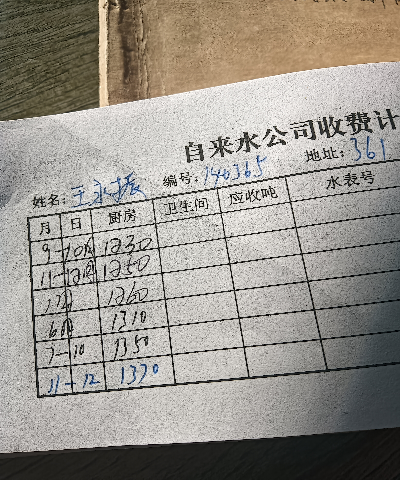 自来水公司收费计
姓名：王永振 编号：140365 地址：361
月 日 厨房 卫生间 应收吨 水表号
9-10月 1230
11-12月 1250
1260
6月 1310
7-10 1350
11-12 1370